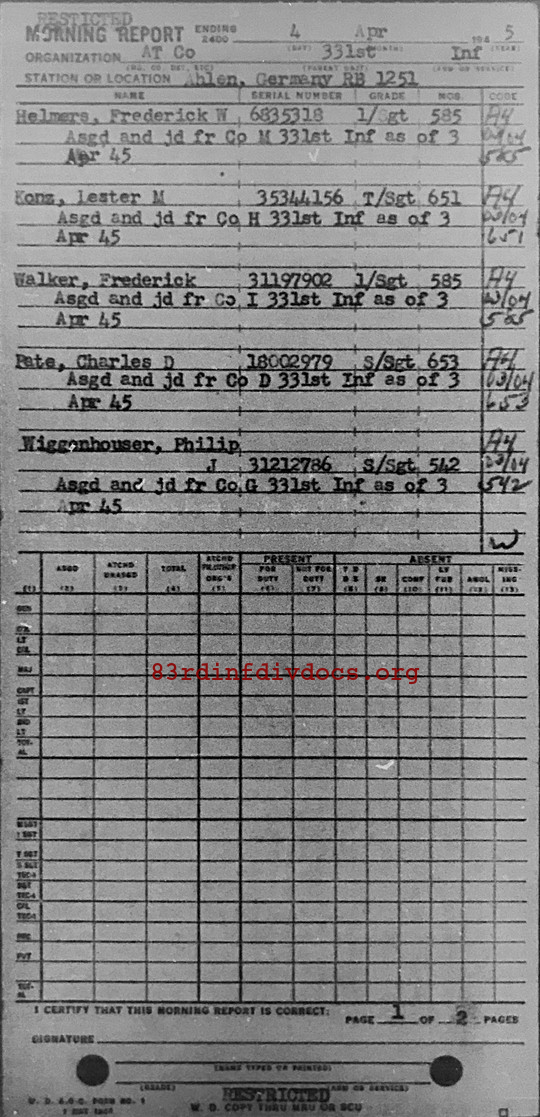 RESTICTED
MORNING REPORT ENDING 2400 4 Apr 194 5
(DAY) (MONTH) (YEAR)
ORGANIZATION AT Co 331st Inf
(PARENT UNIT) (ARM OR SERVICE)
STATION OR LOCATION Ahlen, Germany RB 1251
NAME SERIAL NUMBER GRADE MOS. CODE
Helmers, Frederick W 6835318 1/Sgt 585 A4
Asgd and jd fr Co M 331st Inf as of 3 03/04
Apr 45 585
Konz, Lester M 35344156 T/Sgt 651 A4
Asgd and jd fr Co H 331st Inf as of 3 03/04
Apr 45 651
Walker, Frederick 31197902 1/Sgt 585 A4
Asgd and jd fr Co I 331st Inf as of 3 03/04
Apr 45 585
Pate, Charles D 18002979 S/Sgt 653 A4
Asgd and jd fr Co D 331st Inf as of 3 03/04
Apr 45 653
Wiggenhouser, Philip A4
J 31212786 S/Sgt 542 03/04
Asgd and jd fr Co G 331st Inf as of 3 542
Apr 45
W
PRESENT ABSENT
ASGD ATCHD UNASGD TOTAL ATCHD FR OTHER ORG'S FOR DUTY NOT FOR DUTY T D D S SK CONF LV FUR AWOL MISS-ING
(1) (2) (3) (4) (5) (6) (7) (8) (9) (10) (11) (12) (13)
GEN
COL
LT COL
MAJ
83rdinfdivdocs.org
CAPT
1ST LT
2ND LT
TOT-AL
MSGT
1 SGT
T SGT
S SGT
TEC-3
SGT
TEC-4
CPL
TEC-5
PFC
PVT
TOT-AL
I CERTIFY THAT THIS MORNING REPORT IS CORRECT:
PAGE 1 OF 2 PAGES
SIGNATURE
(NAME TYPED OR PRINTED)
(GRADE) (ARM OR SERVICE)
RESTRICTED
W. D. A.G.O. FORM NO. 1
W. D. COPY THRU MRU OR SCU